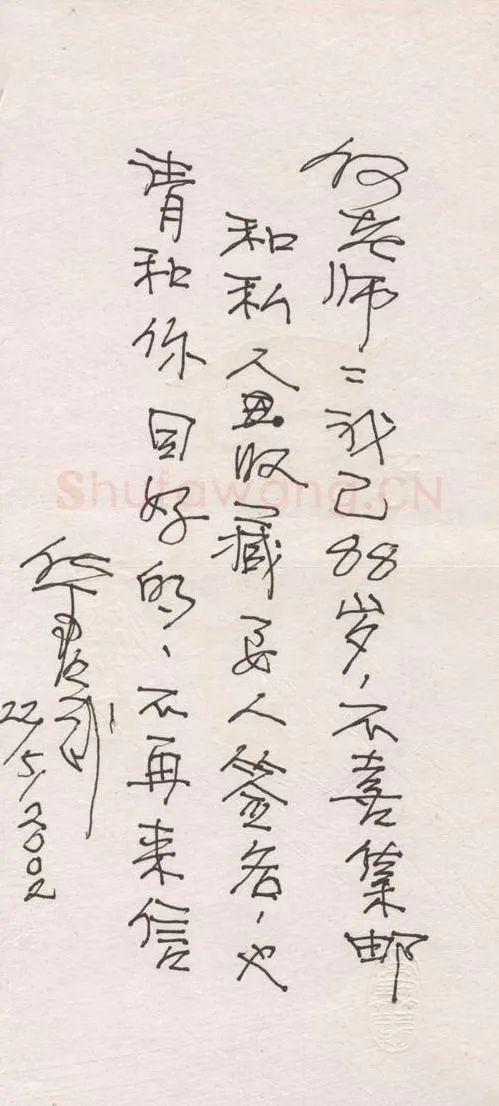 何老师：我已88岁，不喜集邮
和私人收藏要人签名，也
请和你同好的、不再来信
22/5/2002
Shufawang.CN